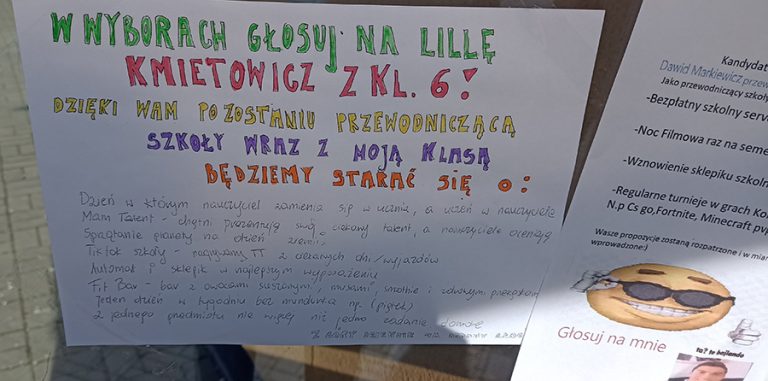 W WYBORACH GŁOSUJ NA LILLĘ
KMIETOWICZ Z KL. 6!
DZIĘKI WAM PO ZOSTANIU PRZEWODNICZĄCĄ
SZKOŁY WRAZ Z MOJĄ KLASĄ
BĘDZIEMY STARAĆ SIĘ O:
Dzień w którym nauczyciel zamienia się w ucznia, a uczeń w nauczyciela
Mam Talent - chętni prezentują swój ciekawy talent, a nauczyciele oceniają
Sprzątanie planety na dzień ziemi
Tik tok szkoły - nagrywamy TT z ważnych dni/wyjazdów
Automat / sklepik w najlepszym wyposażeniu
Fit Bar - bar z owocami suszonymi, musami, smothie i zdrowymi przekąskami
Jeden dzień w tygodniu bez mundurka np. (piątek)
Z jednego przedmiotu nie więcej niż jedno zadanie domowe
Kandydat
Dawid Markiewicz przew
Jako przewodniczący szkoły
-Bezpłatny szkolny serw
-Noc Filmowa raz na seme
-Wznowienie sklepiku szkoln
-Regularne turnieje w grach Ko
N.p Cs go,Fortnite, Minecraft pvp
Wasze propozycje zostaną rozpatrzone i w mia
wprowadzone:)
Głosuj na mnie